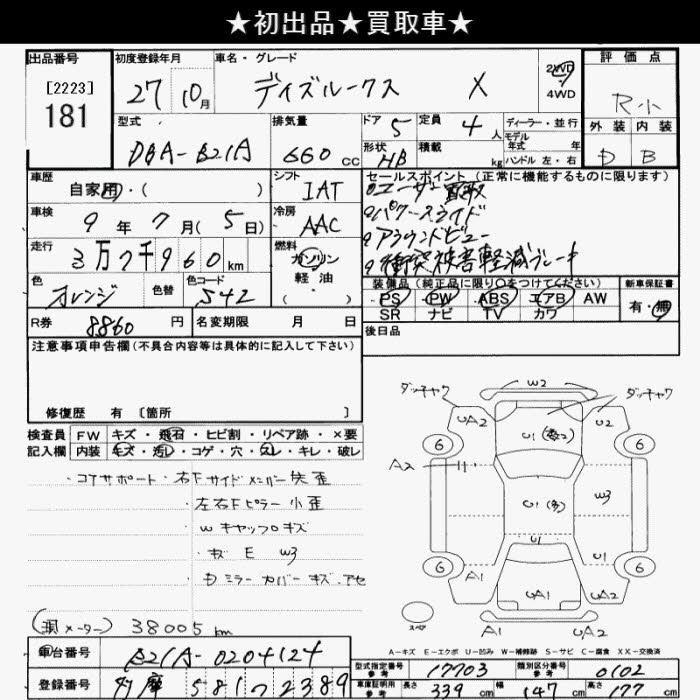 ★初出品★買取車★
出品番号 初度登録年月 車名・グレード 評価点
[2223] 181
27 10月 デイズルークス X 2WD 4WD R小
型式 排気量 ドア 5 定員 4人 ディーラー・並行 外装 内装
DBA-B21A 660cc 形状 HB 積載 kg モデル年式 年 ハンドル 左・右 D B
車歴 自家用・( ) シフト IAT セールスポイント (正常に機能するものに限ります)
車検 9年7月(5日) 冷房 AAC
ユーザー買取
パワースライド
アラウンドビュー
衝突被害軽減ブレーキ
走行 3万7千960km 燃料 ガソリン 軽油 ( )
色 オレンジ 色替 色コード S42
装備品 (純正品に限り○をつけてください) 新車保証書
PS PW ABS エアB AW 有・無
SR ナビ TV カワ
R券 8860円 名変期限 月 日 後日品
注意事項申告欄(不具合内容等は具体的に記入して下さい)
修復歴 有 [箇所 ]
検査員 FW キズ・飛石・ヒビ割・リペア跡・×要
記入欄 内装 キズ・汚レ・コゲ・穴・スレ・キレ・破レ
・コアサポート・右Fサイドメンバー先歪
・左右Fピラー小歪
・Wキャップロキズ
・キズ E W3
・ミラーカバーキズ、アセ
(現メーター) 38005km
ダッチャク W2 ダッチャク
UA2 U2
6 U1(数2) 6
A2
U1(多) W3
U1 U1
6 6
A1 UA1 UA2
スペア
A1 UA2
A-キズ E-エクボ U-凹み W-補修跡 S-サビ C-腐食 XX-交換済
車台番号 B21A-0204124
型式指定番号 参考 17703 類別区分番号 参考 0102
登録番号 多摩 581 2389
車庫証明用 参考 長さ 339cm 幅 147cm 高さ 177cm